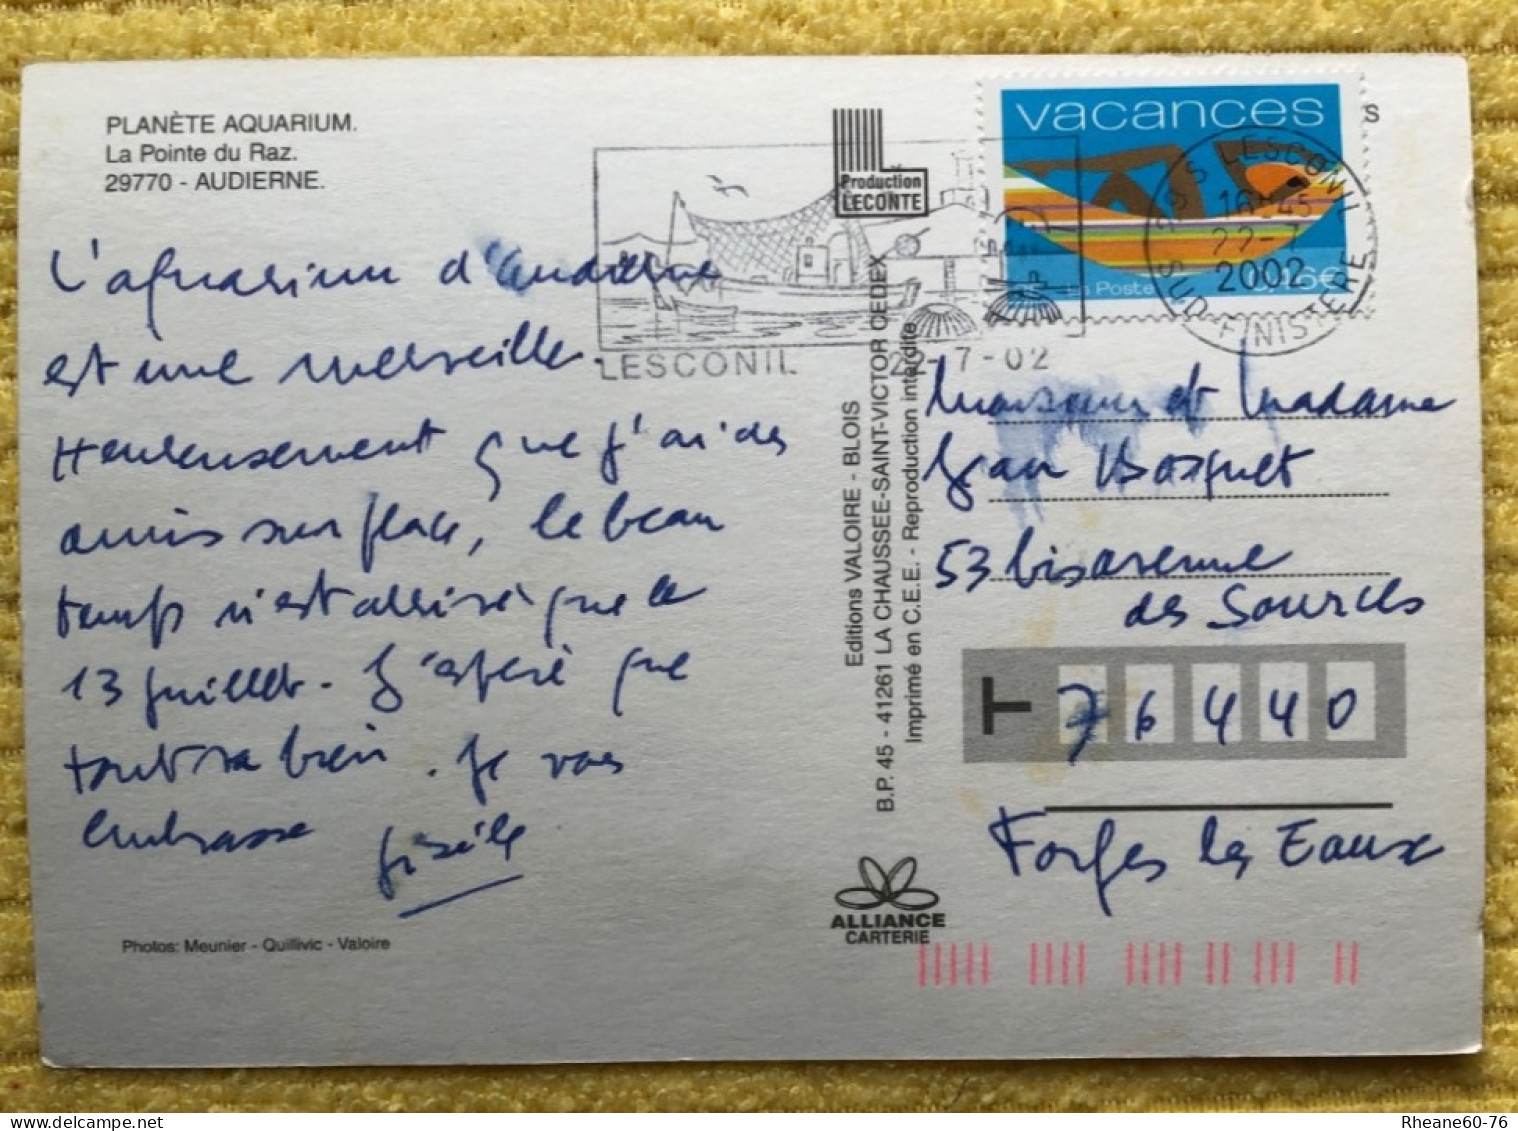 PLANÈTE AQUARIUM.
La Pointe du Raz.
29770 - AUDIERNE.
L'aquarium d'Audierne
est une merveille.
Heureusement que j'ai des
amis sur place, le beau
temps n'est arrivé que le
13 juillet. J'espère que
tout va bien. Je vous
embrasse Gisèle
Photos: Meunier - Quillivic - Valoire
Production
LECONTE
LESCONIL 22-7-02
Editions VALOIRE - BLOIS
B.P. 45 - 41261 LA CHAUSSEE-SAINT-VICTOR CEDEX
Imprimé en C.E.E. - Reproduction interdite
ALLIANCE
CARTERIE
vacances
La Poste 0,46€
29 S LESCONIL
16H45
22-7
2002
SUD-FINISTERE
S
Monsieur et Madame
Jean Bosquet
53 bis avenue
des Sources
T 76440
Forges les Eaux
Rheane60-76